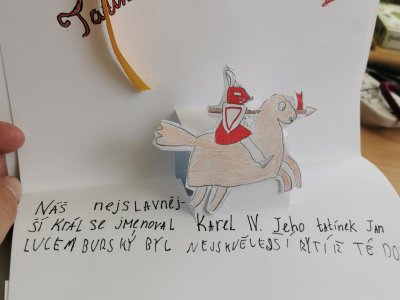 NÁŠ nejSLAVNĚJ-
ŠÍ KRÁL Se jMeNOVAL Karel IV. Jeho tatínek Jan
LUCEMBURSKÝ BYL NEJSKVĚLEJŠÍ RYTÍŘ TÉ DO